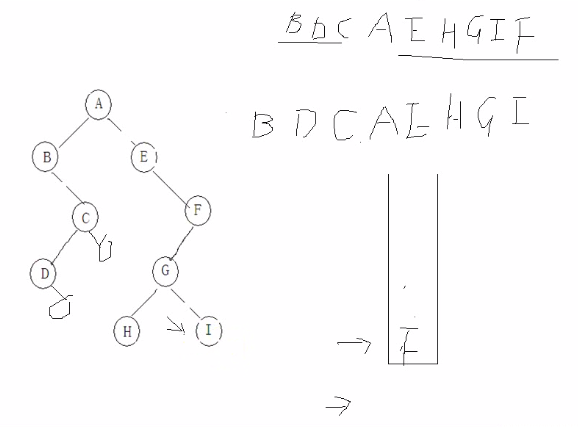 B D C A E H G I F
B D C A E H G I
A
B
E
C
F
D
G
H
I
F